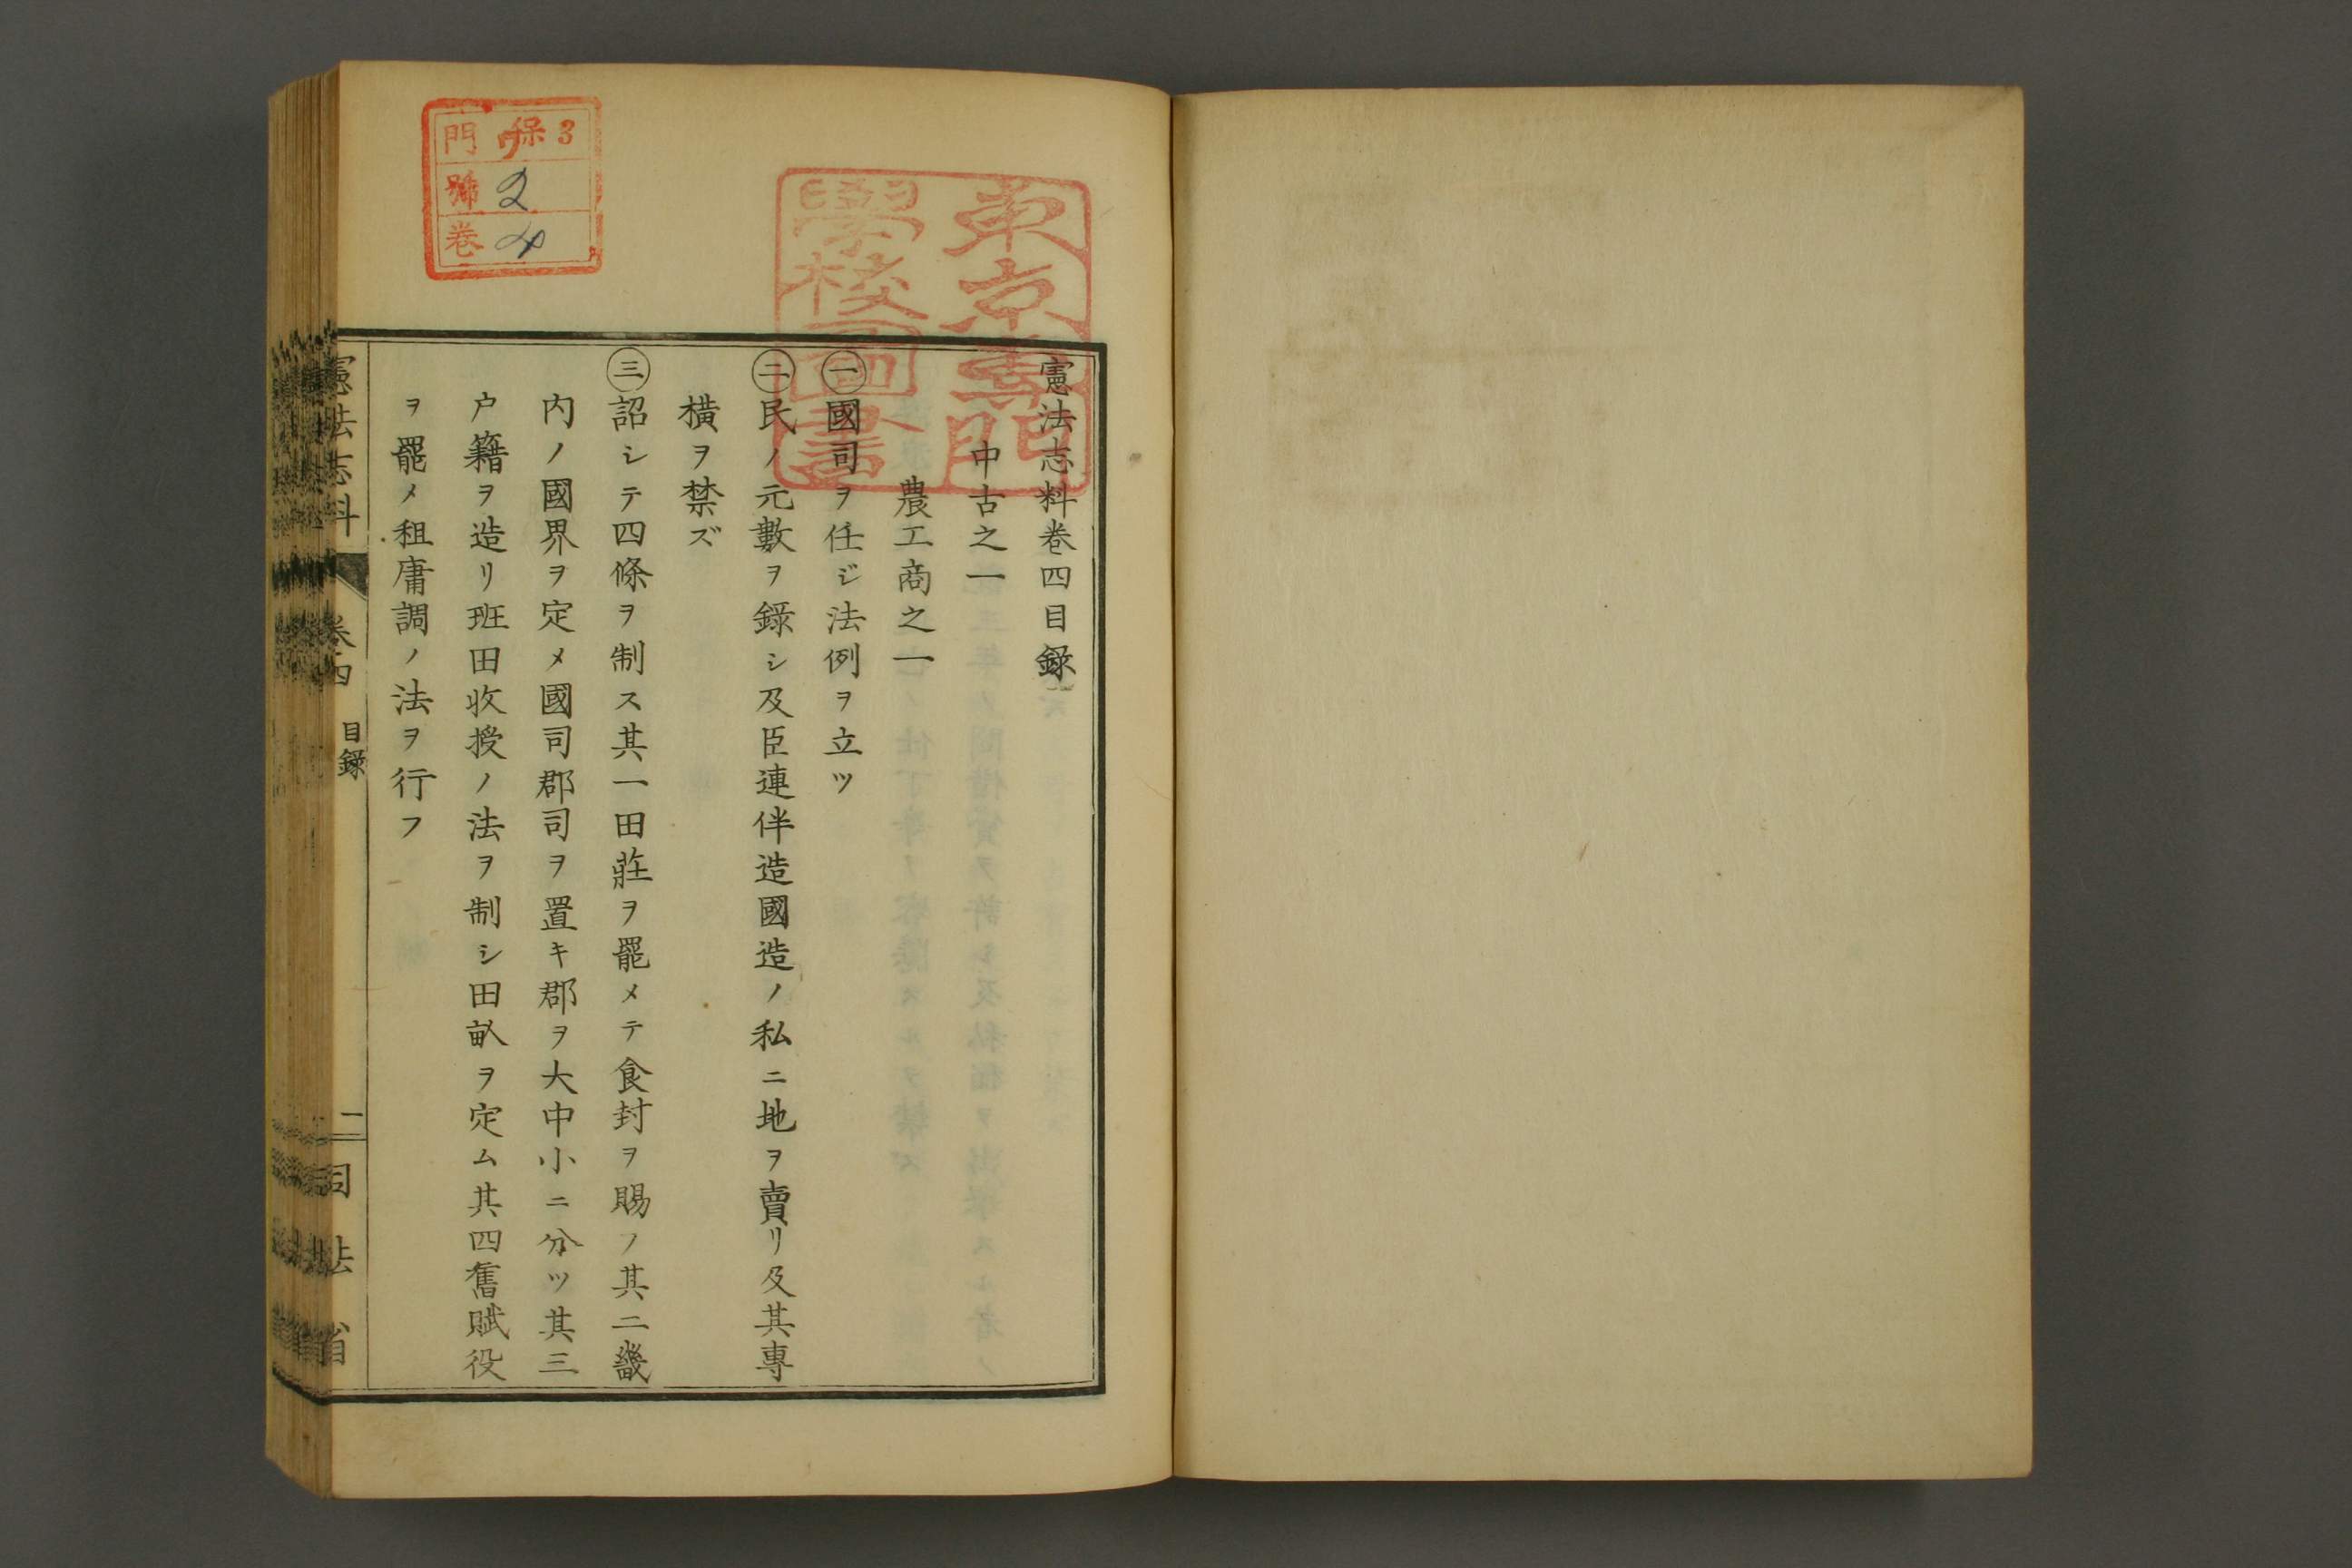 憲法志料卷四目録
中古之一
農工商之一
㊀國司ヲ任ジ法例ヲ立ツ
㊁民ノ元數ヲ錄シ及臣連伴造國造ノ私ニ地ヲ賣リ及其專
橫ヲ禁ズ
㊂詔シテ四條ヲ制ス其一田莊ヲ罷メテ食封ヲ賜フ其二畿
内ノ國界ヲ定メ國司郡司ヲ置キ郡ヲ大中小ニ分ツ其三
户籍ヲ造リ班田收授ノ法ヲ制シ田畝ヲ定ム其四舊賦役
ヲ罷メ租庸調ノ法ヲ行フ
憲法志料 卷四 目錄 二 司法省
東京專門
學校圖書
門 3
號 2
卷 4